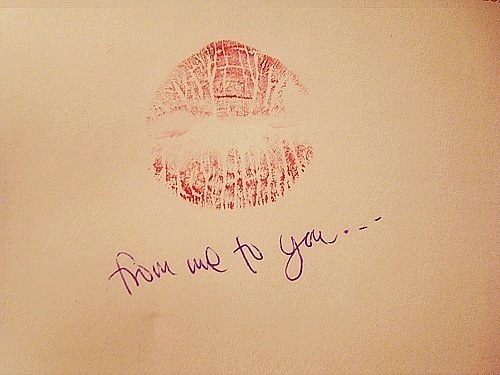 from me to you...